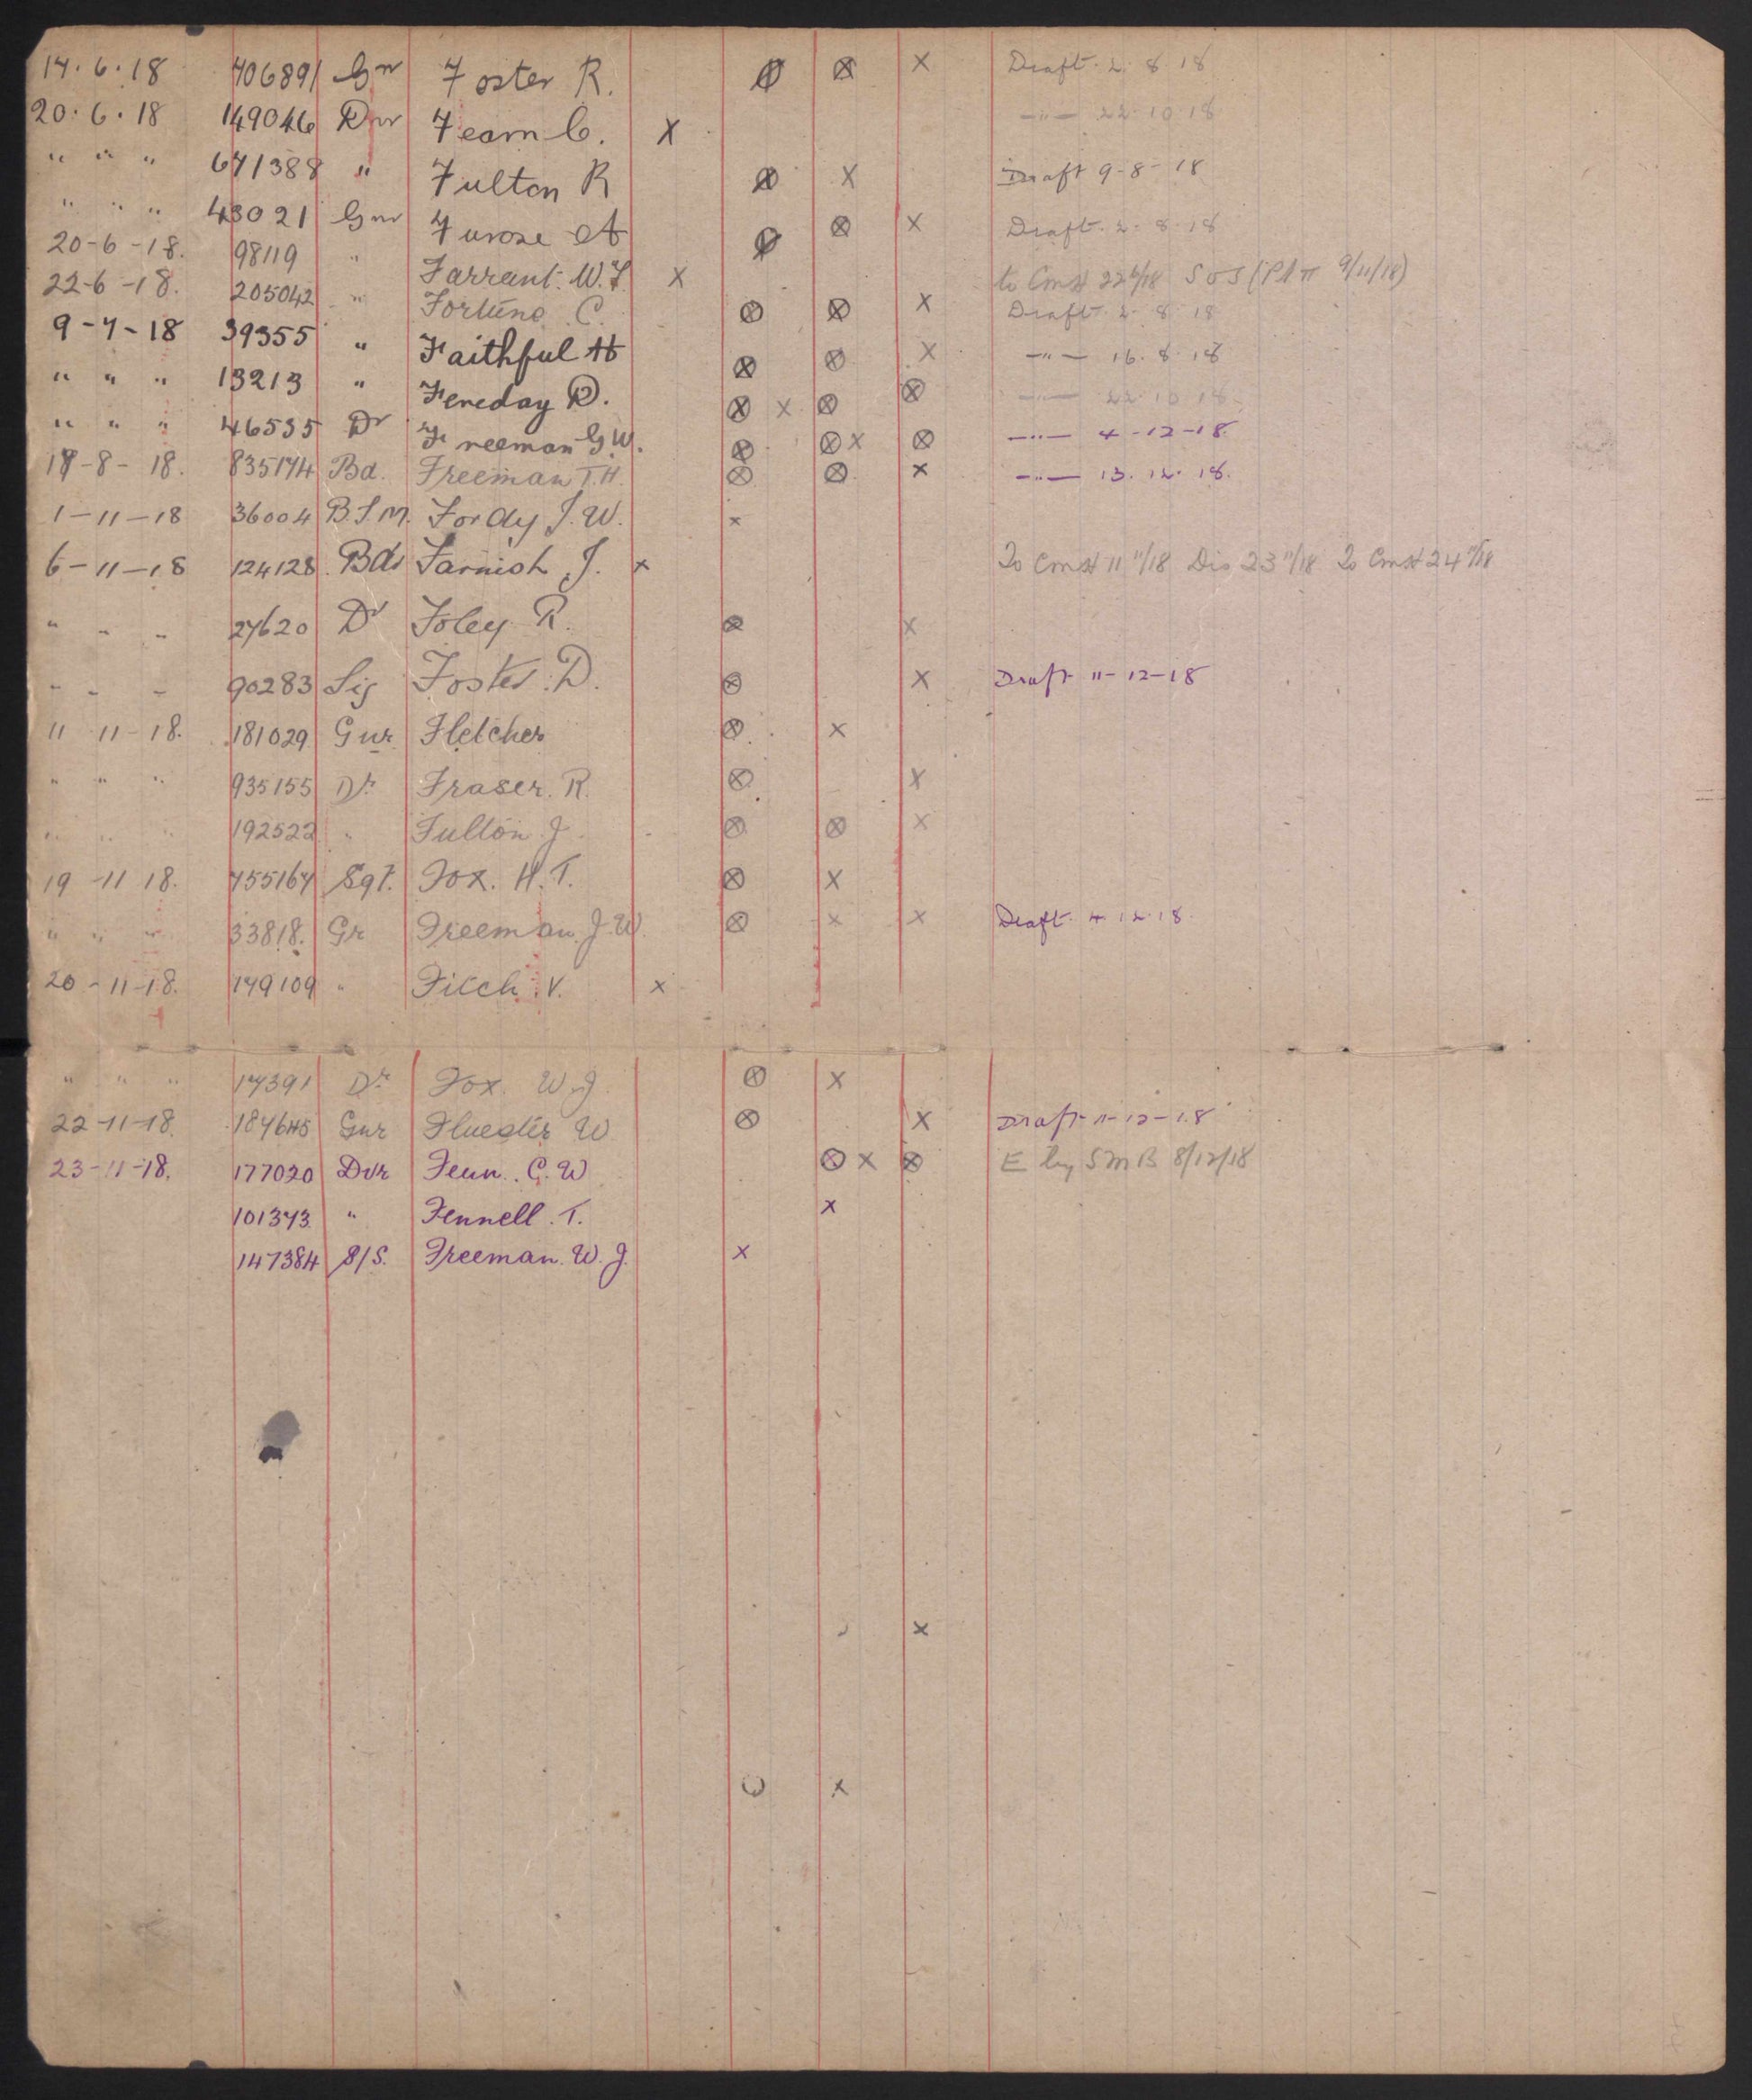 14.6.18 706891 Gnr Foster R. Ø ⊗ X Draft. 2. 8. 18
20.6.18 149046 Dvr Fearn C. X —"— 22.10.18
" " " 671388 " Fulton R ⊗ X Draft 9-8-18
" " " 43021 Gnr Furose A Ø ⊗ X Draft. 2. 8. 18
20-6-18. 98119 " Farrant. W.F. X to Const 22 6/18 S O S ( 9/11/18)
22-6-18. 205042 " Fortune C. ⊗ ⊗ X Draft. 2. 8. 18
9-7-18 39355 " Faithful H ⊗ ⊗ X —"— 16. 8. 18
" " " 13213 " Fereday R. ⊗ X ⊗ ⊗ —"— 22.10.18.
" " " 46535 Dr Freeman G.W. ⊗ ⊗ X ⊗ —"— 4-12-18.
17-8-18. 835174 Bd. Freeman T.H. ⊗ ⊗ X —"— 13.12.18.
1-11-18 36004 B.S.M. Fordy J.W. X
6-11-18 124128 Bdr Farnish J. X To Const 11 11/18 Dis 23 11/18 To Const 24 11/18
" " " 27620 Dr Foley R. ⊗ X
" " " 90283 Sig Foster. D. ⊗ X Draft 11-12-18
11 11-18. 181029 Gnr Fletcher ⊗ X
" " " 935155 Dr. Fraser. R. ⊗ X
" " " 192522 " Fulton J. ⊗ ⊗ X
19-11 18. 755167 Sgt. Fox. H.T. ⊗ X
" " " 33818. Gr Freeman J.W. ⊗ X X Draft. 4.12.18.
20-11-18. 149109 " Fitch. V. X
" " " 17391 Dr. Fox. W.J. ⊗ X
22-11-18. 184645 Gnr W ⊗ X Draft 11-12-18
23-11-18. 177020 Dvr Fenn. C.W ⊗ X ⊗ E by S M B 8/12/18
101373. " Fennell. T. X
147384 S/S. Freeman. W.J. X
X
X